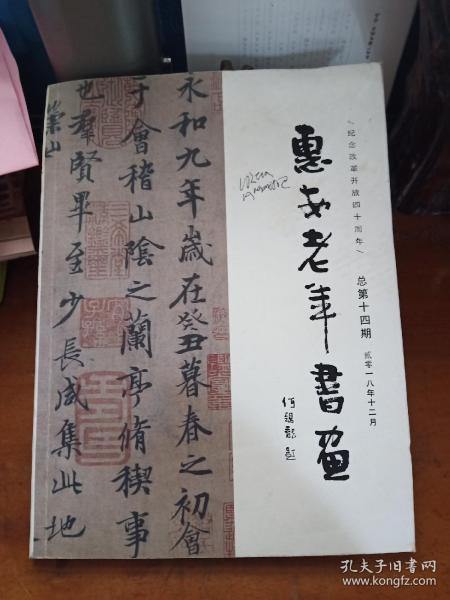 惠安老年书画
(纪念改革开放四十周年)
总第十四期
贰零一八年十二月
永和九年歲在癸丑暮春之初會
于會稽山陰之蘭亭脩稧事
也羣賢畢至少長咸集此地
孔夫子旧书网
www.kongfz.com